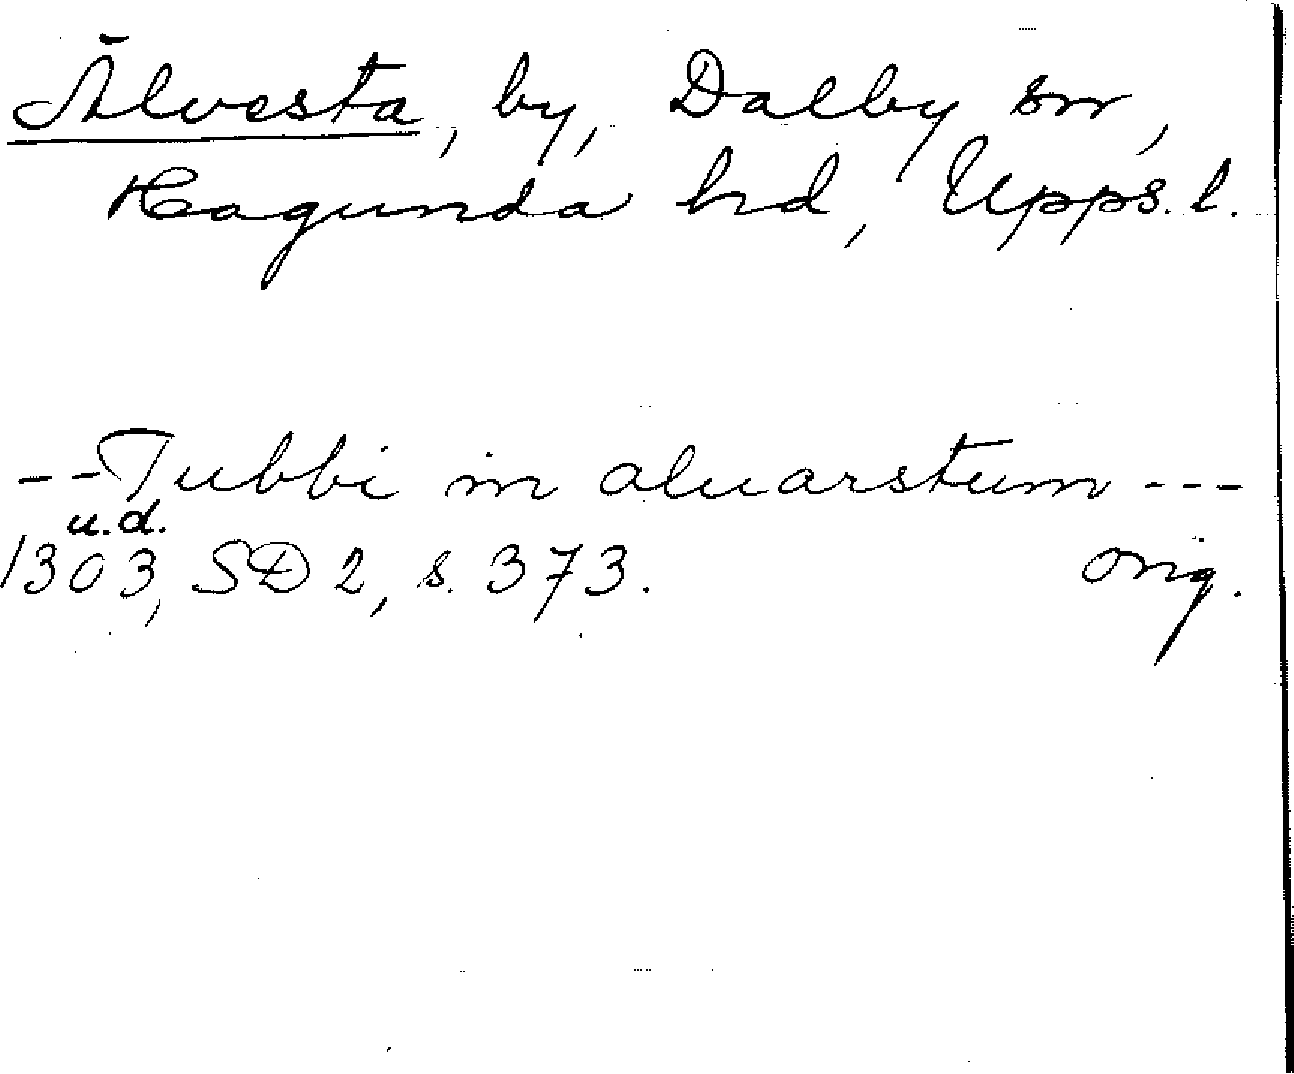 Älvesta, by, Dalby sn,
Hagunda hd, Upps. l.
--Tubbi in aluarstum ---
u.d.
1303, SD 2, s. 373. orig.